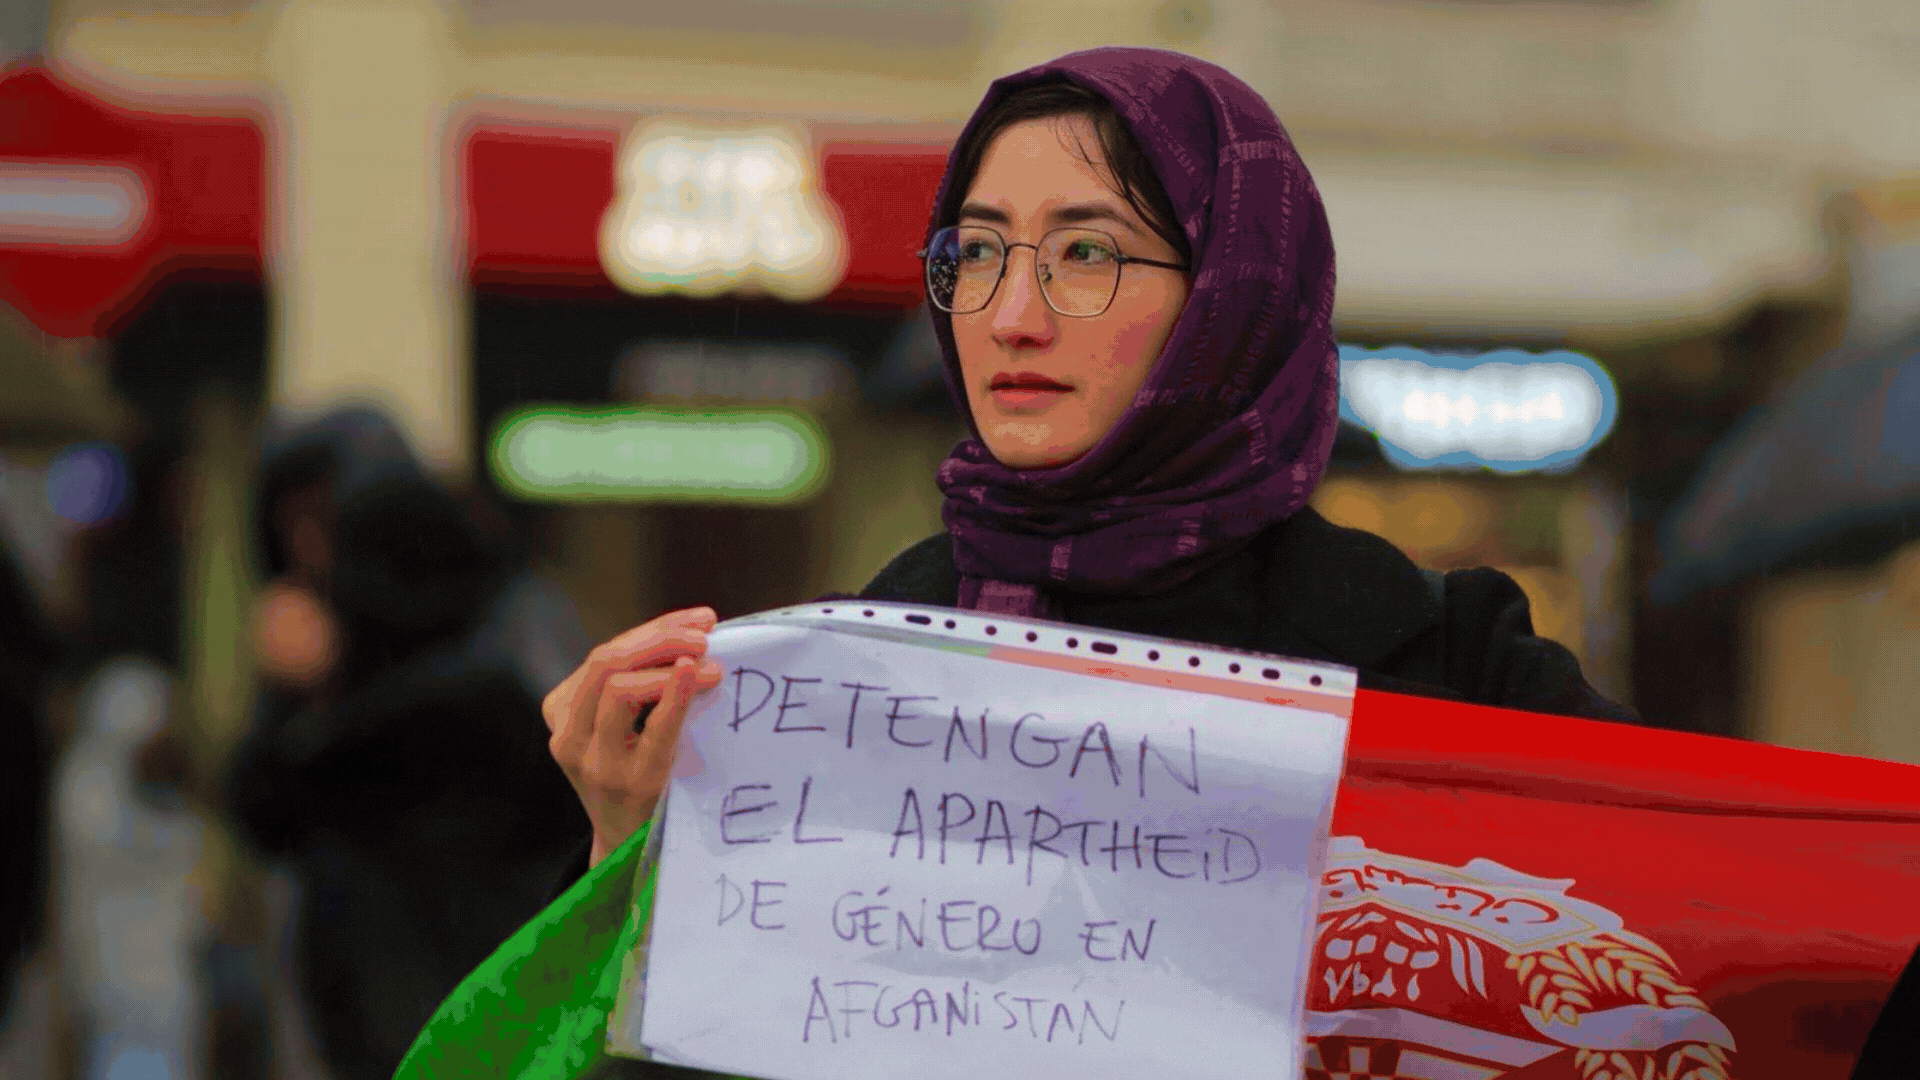 DETENGAN
EL APARTHEiD
DE GÉNERO EN
AFGANiSTÁN